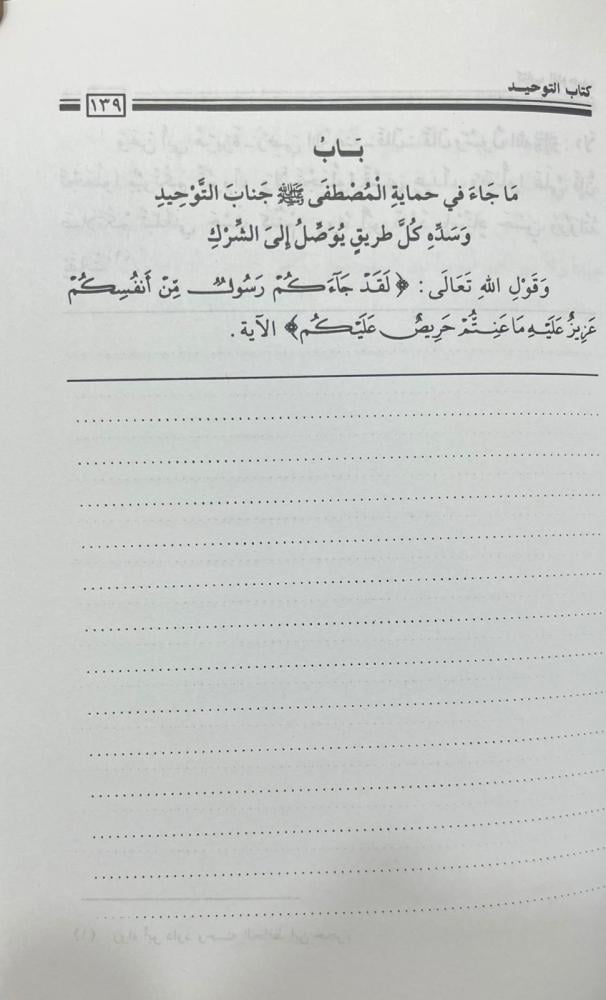 كتاب التوحيد
١٣٩
بَابُ
مَا جَاءَ في حمايةِ الْمُصْطفَى ﷺ جَنابَ التَّوْحِيدِ
وَسَدِّهِ كُلَّ طريقٍ يُوَصِّلُ إلىَ الشِّرْكِ
وَقَوْلِ اللهِ تَعَالَى : ﴿ لَقَدْ جَآءَكُمْ رَسُولٌ مِّنْ أَنفُسِكُمْ
عَزِيزٌ عَلَيْهِ مَا عَنِتُّمْ حَرِيصٌ عَلَيْكُم﴾ الآية .